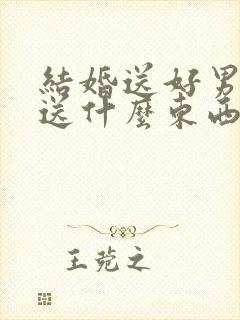 結婚送好男
送什麼東西
王菀之